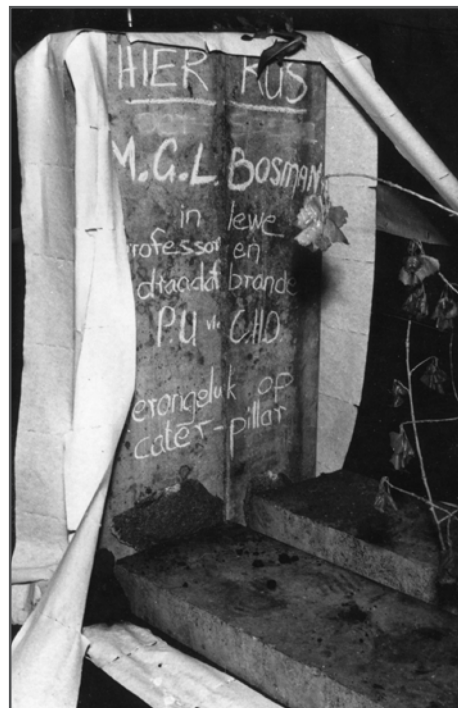 HIER RUS
M.G.L. BOSMAN
in lewe
rofessor en
draadaf brande
P.U vir C.H.O.
erongeluk op
cater-pillar